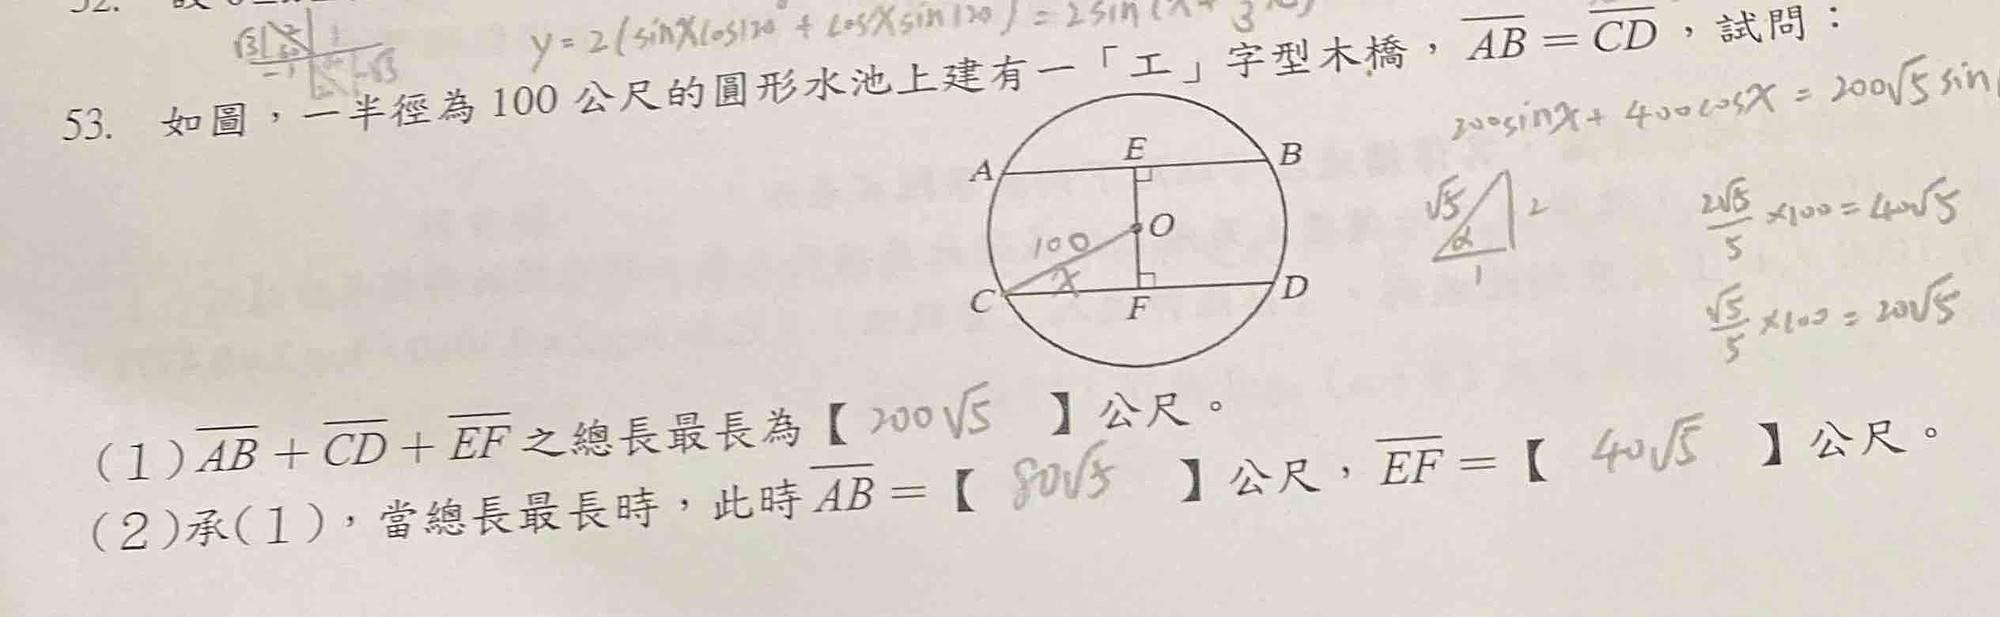 y = 2(sinxcos120° + cosxsin120°) = 2sin(x+
√3
-1
-√3
53. 如圖，一半徑為 100 公尺的圓形水池上建有一「工」字型木橋，AB = CD，試問：
200sinx + 400cosx = 200√5 sin
A
E
B
O
100
x
C
F
D
√5
2
α
1
2√5/5 ×100 = 40√5
√5/5 ×100 = 20√5
(1) AB + CD + EF 之總長最長為【 200√5 】公尺。
(2)承(1)，當總長最長時，此時 AB =【 80√5 】公尺，EF =【 40√5 】公尺。